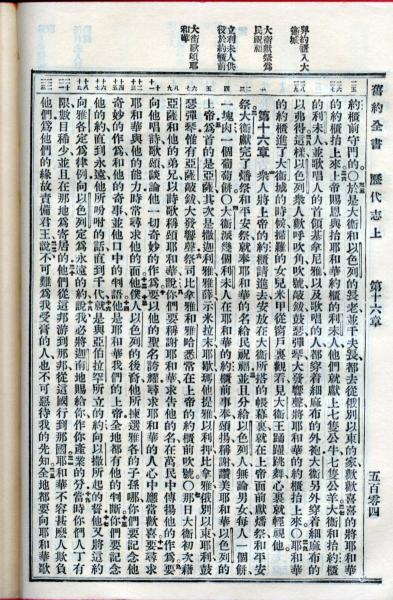 舊約全書 歷代志上 第十六章 五百零四
舁約櫃入大
衛城
大衛獻祭爲
民祝福
立利未人供
役於約櫃前
大衛歌頌耶
和華
約櫃前守門的○於是大衛和以色列的長老並千夫長都去從俄別以東的家歡歡喜喜的將耶和華
的約櫃抬上來上帝賜恩與抬耶和華約櫃的利未人他們就獻上七隻公牛七隻公羊大衛和抬約櫃
的利未人並歌唱人的首領基拿尼雅以及歌唱的人都穿着細麻布的外袍大衛另外穿着細麻布的
以弗得這樣以色列衆人歡呼吹角吹號敲鈸鼓瑟彈琴大發響聲將耶和華的約櫃抬上來○耶和華
的約櫃進了大衛城的時候掃羅的女兒米甲從窗戶裏觀看見大衛王踴躍跳舞心裏就輕視他
第十六章 衆人將上帝的約櫃請進去安放在大衛所搭的帳幕裏就在上帝面前獻燔祭和平安
祭大衛獻完了燔祭和平安祭就奉耶和華的名給民祝福並且分給以色列人無論男女每人一個餅
一塊肉一個葡萄餅○大衛派幾個利未人在耶和華的約櫃前事奉頌揚稱謝讚美耶和華以色列的
上帝爲首的是亞薩其次是撒迦利雅雅薛示米拉末耶歇瑪他提雅以利押比拿雅俄別以東耶利鼓
瑟彈琴惟有亞薩敲鈸大發響聲祭司比拿雅雅哈悉常在上帝的約櫃前吹號○那日大衛初次藉
亞薩和他的弟兄以詩歌稱頌耶和華說你們要稱謝耶和華求告他的名在萬民中傳揚他的作爲要
向他唱詩歌頌談論他一切奇妙的作爲要以他的聖名誇耀尋求耶和華的人心中應當歡喜要尋求
耶和華與他的能力時常尋求他的面他僕人以色列的後裔他所揀選雅各的子孫哪你們要記念他
奇妙的作爲和他的奇事並他口中的判語他是耶和華我們的上帝全地都有他的判斷你們要記念
他的約直到永遠他所吩咐的話直到千代就是與亞伯拉罕所立的約向以撒所起的誓他又將這約
向雅各定爲律例向以色列定爲永遠的約說我必將迦南地賜給你作你產業的分當時你們人丁有
限數目稀少並且在那地爲寄居的他們從這邦游到那邦從這國行到那國耶和華不容甚麼人欺負
他們爲他們的緣故責備君王說不可難爲我受膏的人也不可惡待我的先知全地都要向耶和華歌